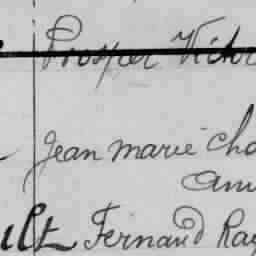 Prosper Victor
Jean Marie Cha
Am
ult Fernand Ray